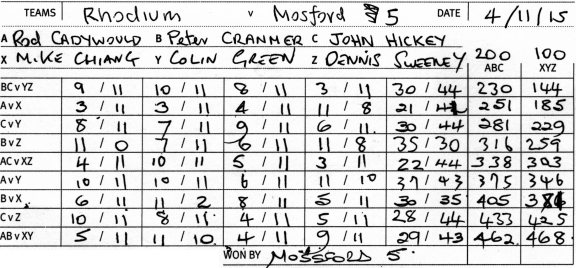 TEAMS Rhodium V Mosford 5 DATE 4/11/15
A Rod CADYWOULD B Peter CRANMER C JOHN HICKEY
X MIKE CHIANG Y COLIN GREEN Z DENNIS SWEENEY 200 ABC 100 XYZ
BCvYZ 9 / 11 10 / 11 8 / 11 3 / 11 30 / 44 230 144
AvX 3 / 11 3 / 11 4 / 11 11 / 8 21 / 41 251 185
CvY 8 / 11 7 / 11 9 / 11 6 / 11 30 / 44 281 229
BvZ 11 / 0 7 / 11 6 / 11 11 / 8 35 / 30 316 259
ACvXZ 4 / 11 10 / 11 5 / 11 3 / 11 22 / 44 338 303
AvY 10 / 11 10 / 11 6 / 11 11 / 10 37 / 43 375 346
BvX 6 / 11 11 / 2 8 / 11 5 / 11 30 / 35 405 381
CvZ 10 / 11 8 / 11 4 / 11 5 / 11 28 / 44 433 425
ABvXY 5 / 11 11 / 10 4 / 11 9 / 11 29 / 43 462 468
WON BY MOSSFORD 5